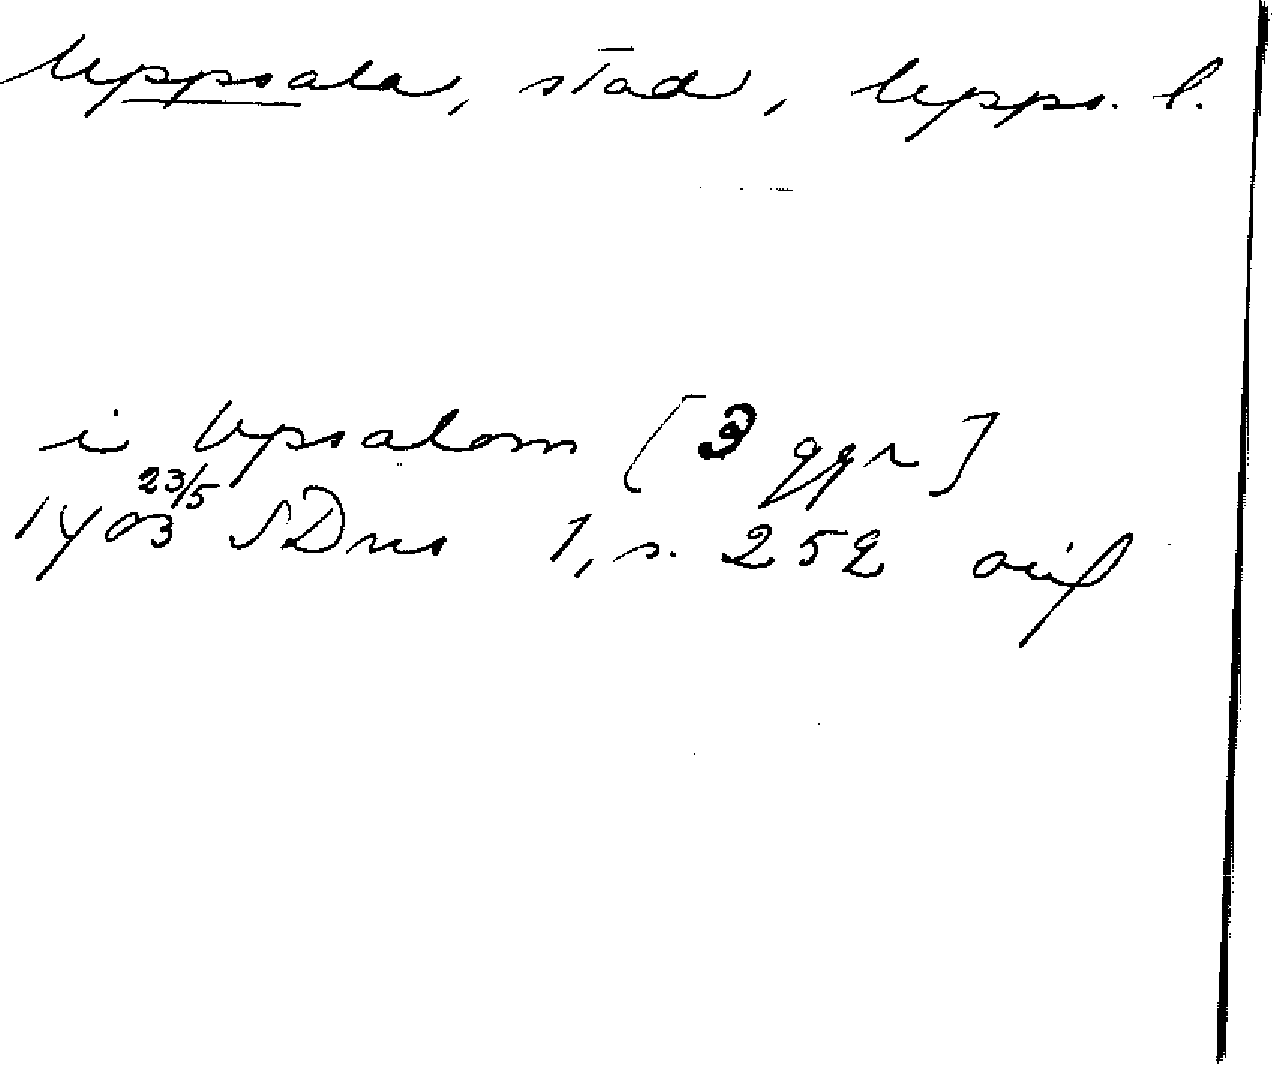 Uppsala, stad, Upps. l.
i Upsalom [3 ggr]
1403 23/5 SDns 1, s. 252 oif